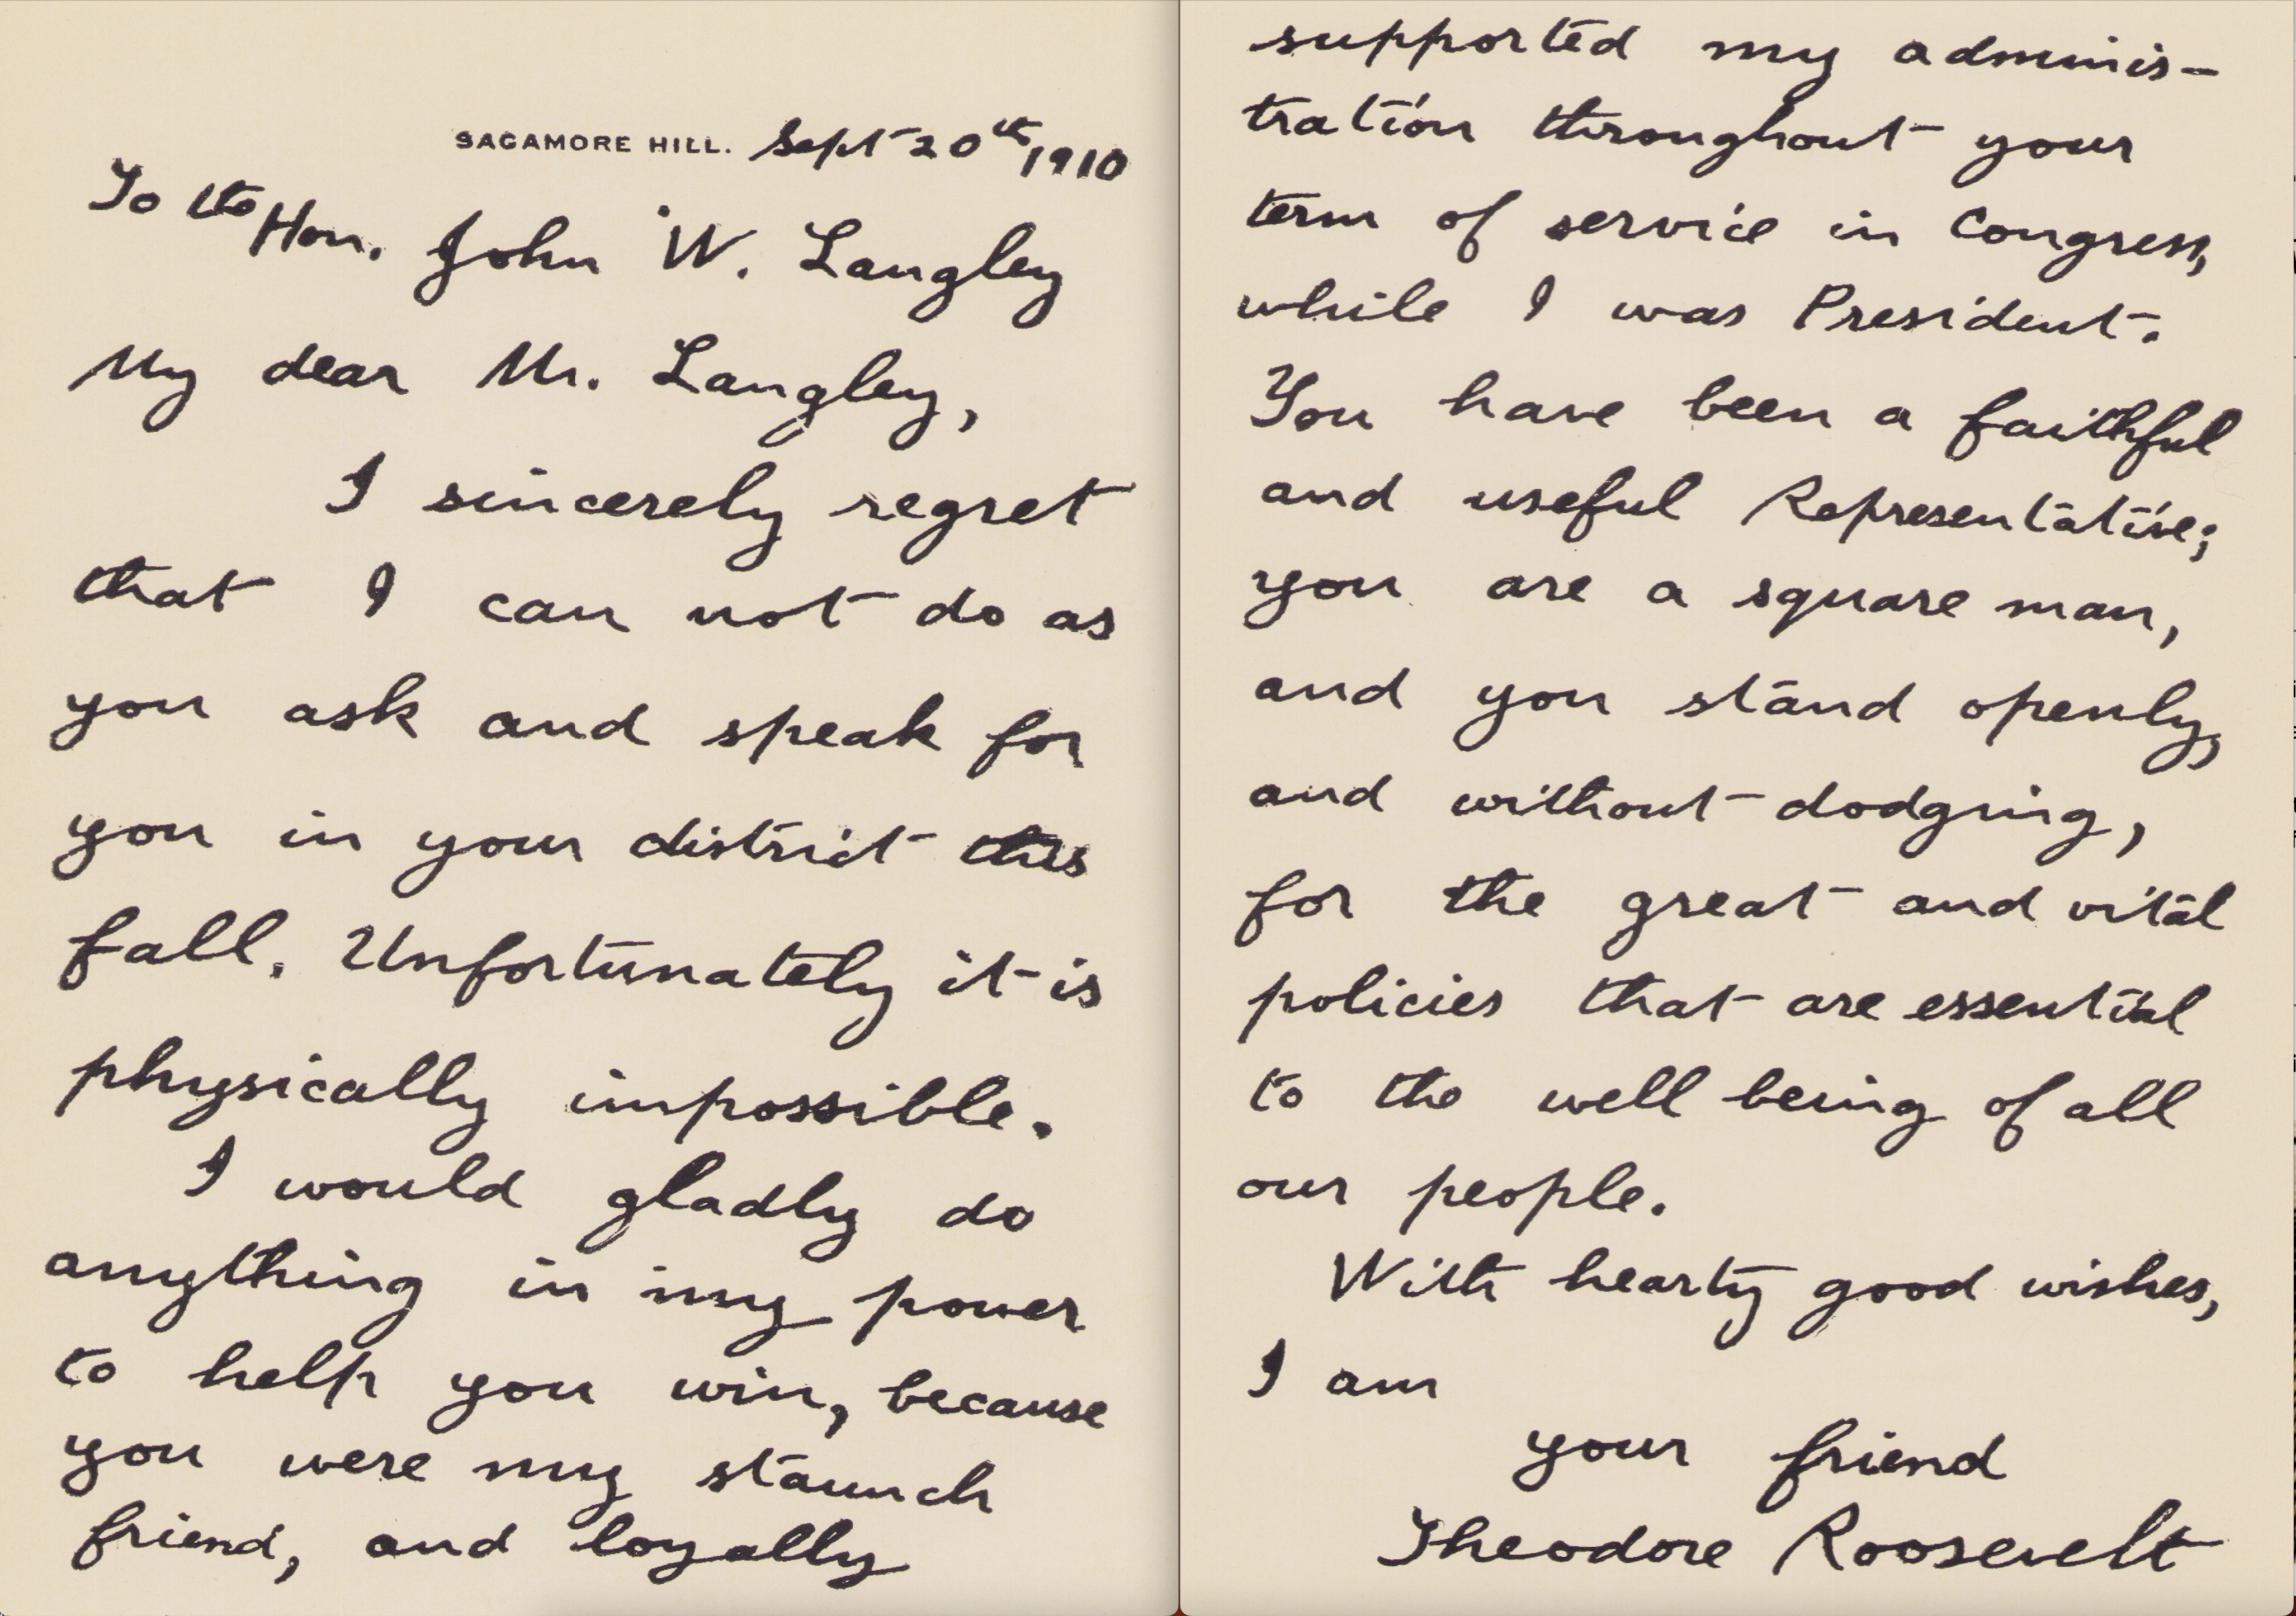 SAGAMORE HILL. Sept 20th, 1910
To the Hon. John W. Langley
My dear Mr. Langley,
I sincerely regret
that I can not do as
you ask and speak for
you in your district this
fall. Unfortunately it is
physically impossible.
I would gladly do
anything in my power
to help you win, because
you were my staunch
friend, and loyally
supported my adminis-
tration throughout your
term of service in Congress,
while I was President.
You have been a faithful
and useful Representative;
you are a square man,
and you stand openly,
and without dodging,
for the great and vital
policies that are essential
to the well being of all
our people.
With hearty good wishes,
I am
your friend
Theodore Roosevelt